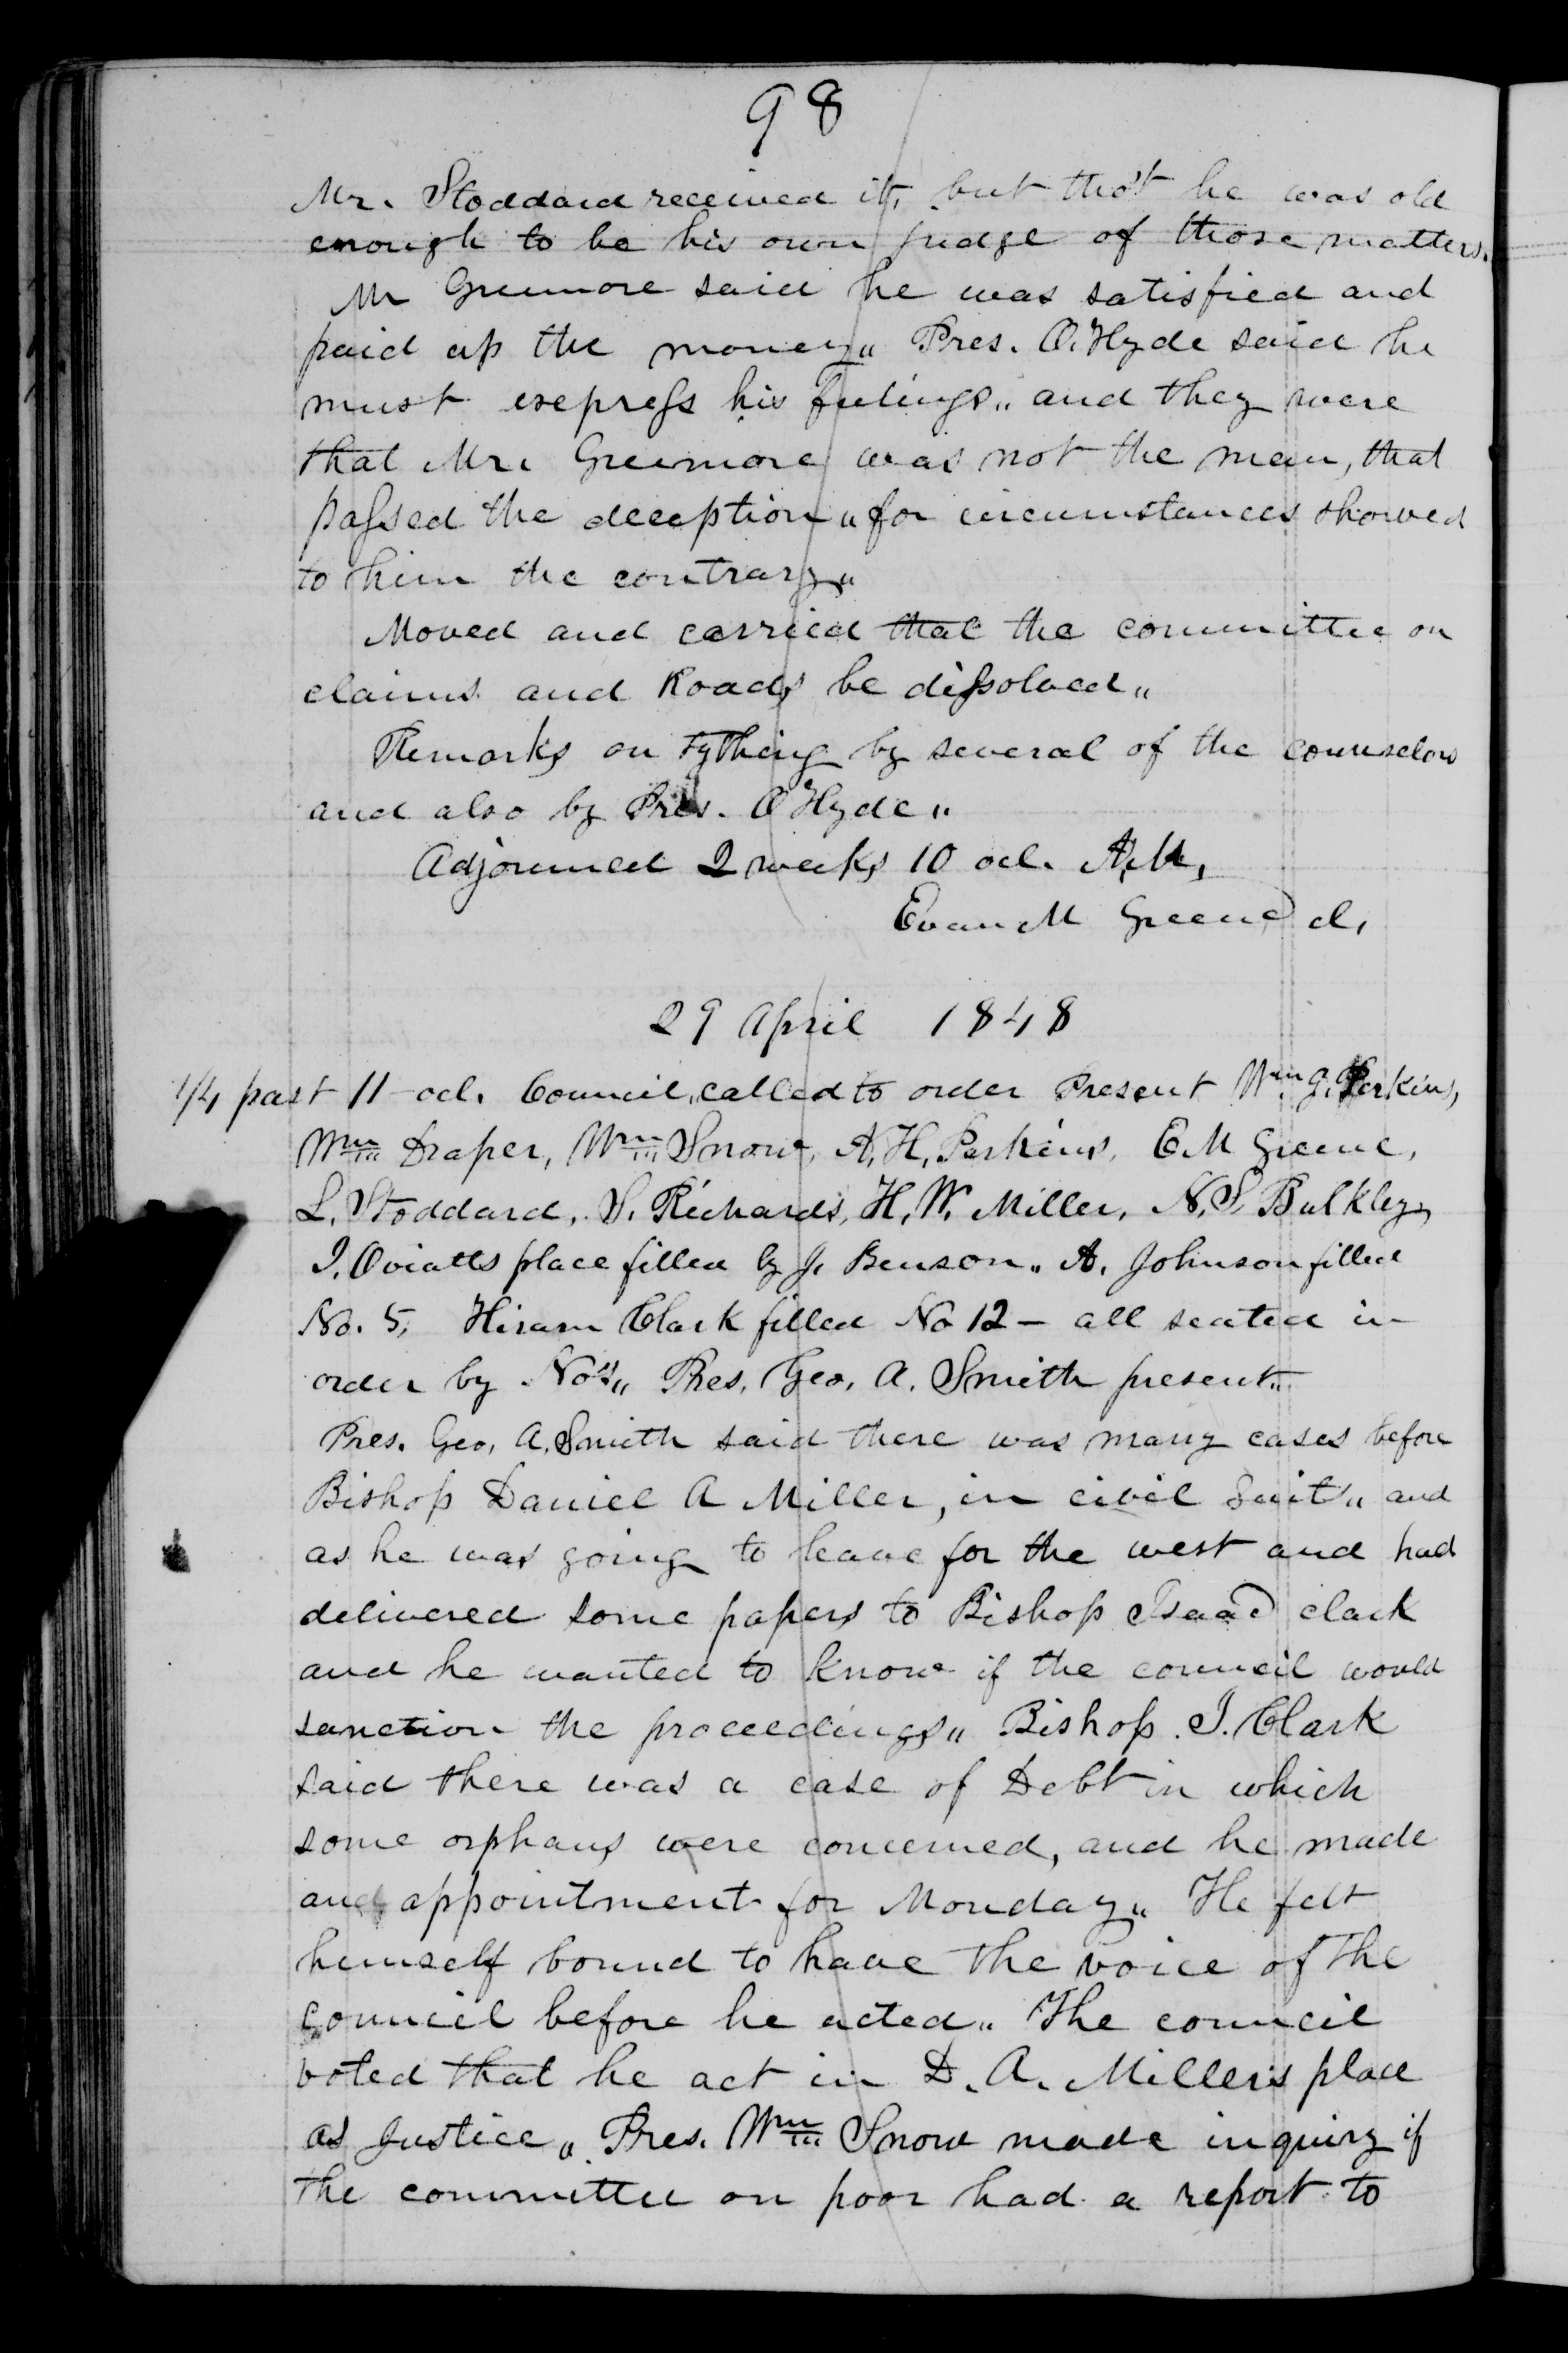 98
Mr. Stoddard received it, but that he was old
enough to be his own judge of those matters.
Mr Greemore said he was satisfied and
paid up the money„ Pres. O. Hyde said he
must express his feelings„ and they were
that Mr. Greemore was not the man, that
passed the deception„ for circumstances showed
to him the contrary„
Moved and carried that the committee on
claims and Roads be dissolved„
Remarks on Tything by several of the counselors
and also by Pres. O Hyde„
Adjourned 2 weeks 10 ocl. A.M.
Evan M Greene cl.
29 April 1848
1/4 past 11 ocl. Council called to order Present Wm G. Perkins,
Wm Draper, Wm Snow, A. H. Perkins, E M Greene,
L. Stoddard, S. Richards, H. W. Miller, N. S. Bulkley,
I. Oviatts place filled by J. Benson„ A. Johnson filled
No. 5, Hiram Clark filled No 12 – all seated in
order by Nos„ Pres. Geo. A. Smith present„
Pres. Geo. A. Smith said there was many cases before
Bishop Daniel A Miller, in civil Suit„ and
as he was going to leave for the west and had
delivered some papers to Bishop Isaac clark
and he wanted to know if the council would
sanction the proceedings„ Bishop I. Clark
said there was a case of Debt in which
some orphans were concerned, and he made
and appointment for Monday„ He felt
himself bound to have the voice of the
council before he acted„ The council
voted that he act in D. A. Millers place
as Justice„ Pres. Wm Snow made inquiry if
the committee on poor had a report to